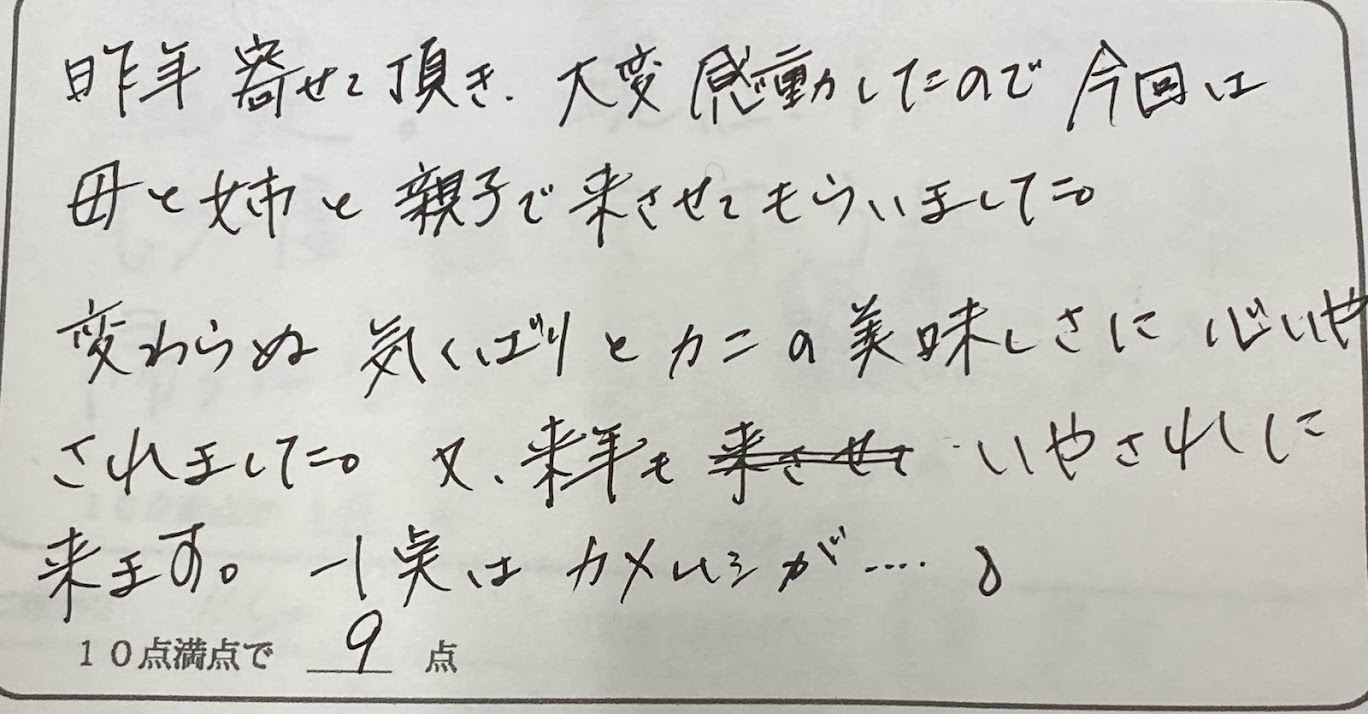 昨年寄せて頂き、大変感動したので今回は
母と姉と親子で来させてもらいました。
変わらぬ気くばりとカニの美味しさに心いや
されました。又、来年も来させて いやされしに
来ます。 -1点はカメムシが…。
10点満点で 9 点